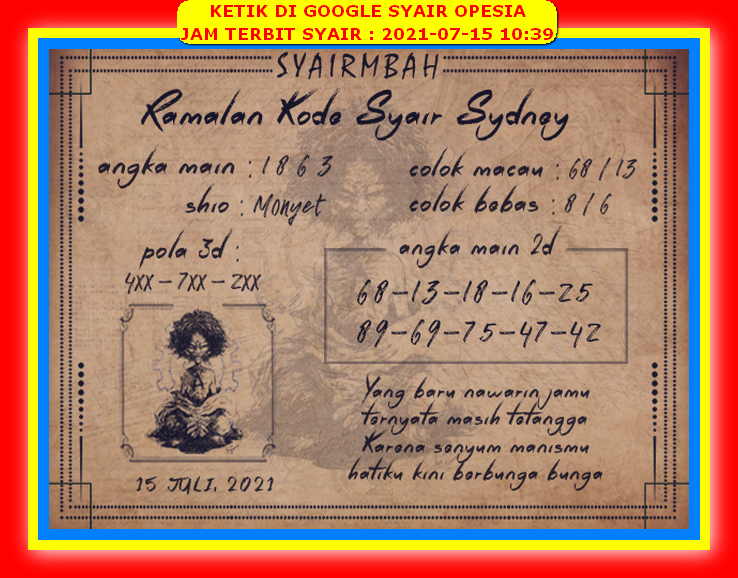 KETIK DI GOOGLE SYAIR OPESIA
JAM TERBIT SYAIR : 2021-07-15 10:39
SYAIRMBAH
Ramalan Kode Syair Sydney
angka main : 1 8 6 3
colok macau : 68 / 13
shio : Monyet
colok bebas : 8 / 6
pola 3d :
4XX - 7XX - 2XX
angka main 2d
68-13-18-16-25
89-69-75-47-42
Yang baru nawarin jamu
ternyata masih tetangga
Karena senyum manismu
hatiku kini berbunga bunga
15 JULI, 2021